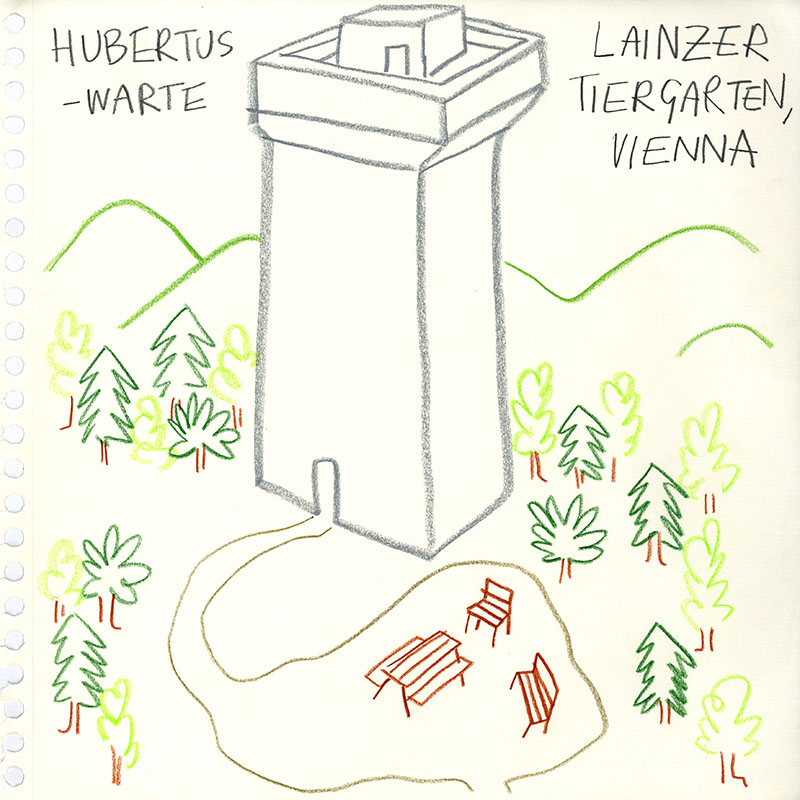 HUBERTUS
-WARTE
LAINZER
TIERGARTEN,
VIENNA